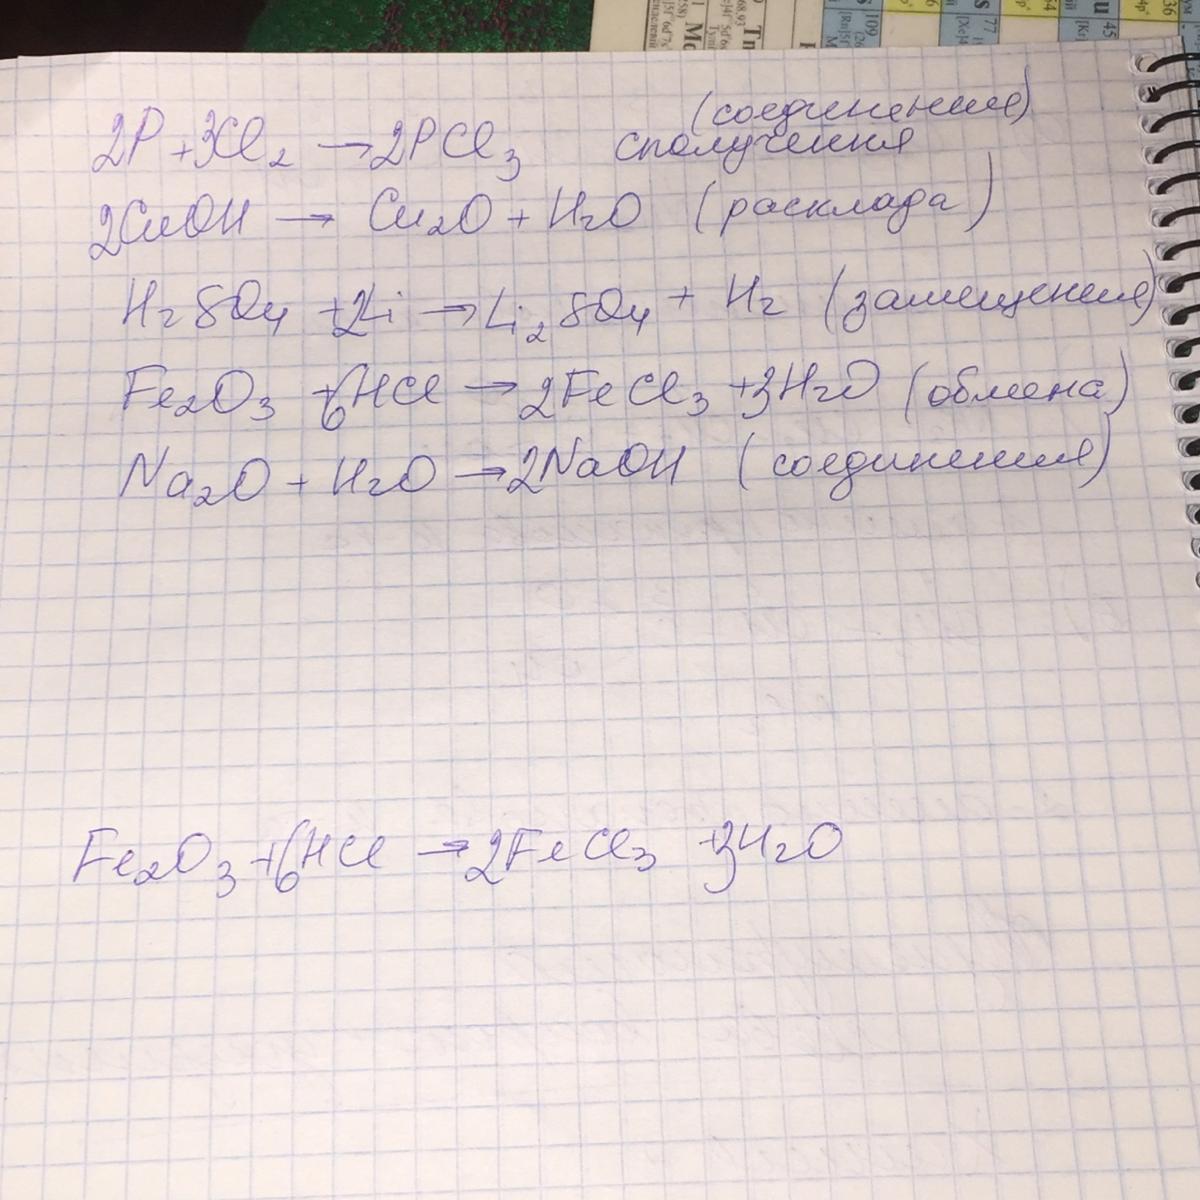 (соединения)
2P + 3Cl₂ → 2PCl₃ сполучення
2CuOH → Cu₂O + H₂O (расклада)
H₂SO₄ + 2Li → Li₂SO₄ + H₂ (замещения)
Fe₂O₃ + 6HCl → 2FeCl₃ + 3H₂O (обмена)
Na₂O + H₂O → 2NaOH (соединения)
Fe₂O₃ + 6HCl → 2FeCl₃ + 3H₂O